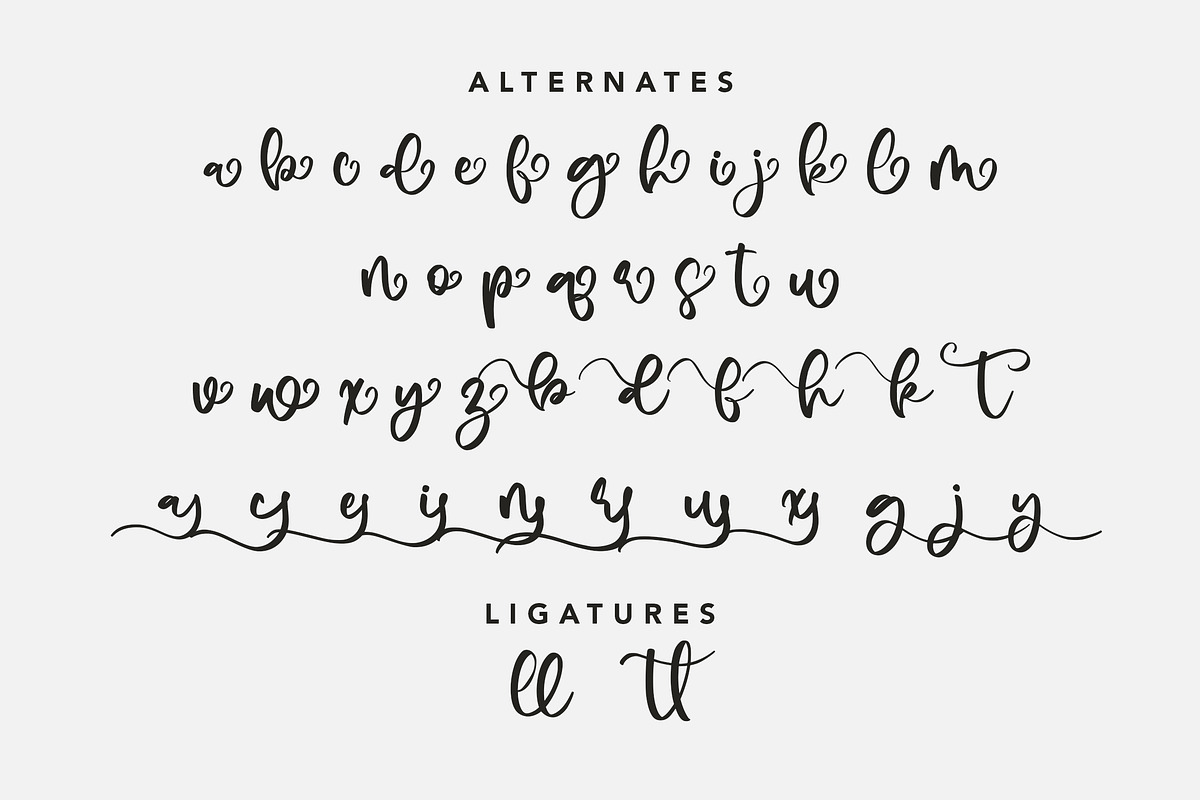 ALTERNATES
a b c d e f g h i j k l m
n o p q r s t u
v w x y z b d f h k t
a c e i n r u x g j y
LIGATURES
ll tt